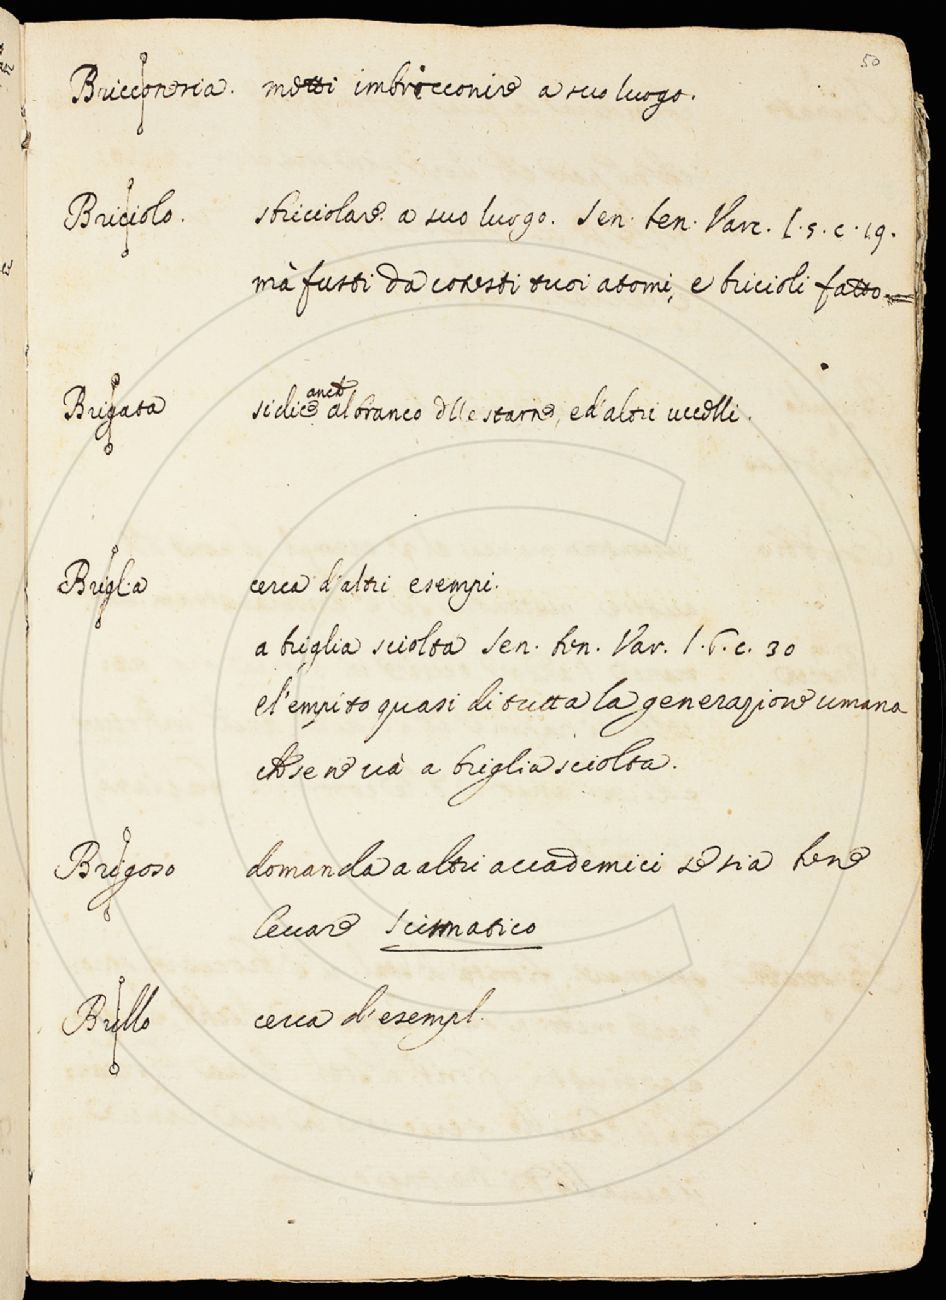 50
Bricconeria. metti imbricconire a suo luogo.
Briciolo. sbriciolare a suo luogo. Sen. ben. Varc. l. 5. c. 19.
mà fusti da cotesti tuoi atomi, e bricioli fatto.
Brigata si dice anche al branco dlle starne, e d'altri uccelli.
Briglia cerca d'altri esempi.
a briglia sciolta Sen. ben. Var. l. 6. c. 30
e l'empito quasi di tutta la generazione umana
che se ne và a briglia sciolta.
Brigoso domanda a altri accademici se sia bene
levare scismatico
Brillo cerca d'esempl.